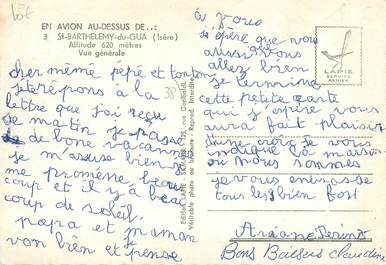 lot
EN AVION AU-DESSUS DE...:
3 St-BARTHELEMY-du-GUA (Isère)
Altitude 620 mètres
Vue générale
38
cher mémé pépé et tonton
je répons à la
lettre que j'ai reçu
le matin je passe
de bone vacance
je m'asuse bien je
me promène beau
coup et il y a beau
coup de soleil.
papa et maman
von bien et pense
à vous
j'espère que vous
aussi vous
allez bien
je termine
cette petite carte
que j'espère vous
aura fait plaisir
une croix je vous
indique la maison
ou nous sommes
je vous embrasse
tous les bien fort
Ariane
Bons Baisers
LAPIE
SERVICE
AERIEN
Editions LAPIE
Véritable photo au bromure - Reprod. Interdite